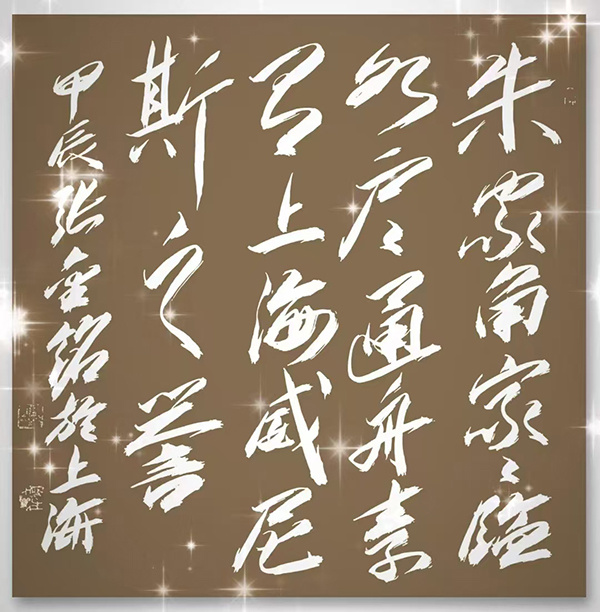 朱家角家々臨
水戶々通舟素
有上海威尼
斯之譽
甲辰张金銘於上海